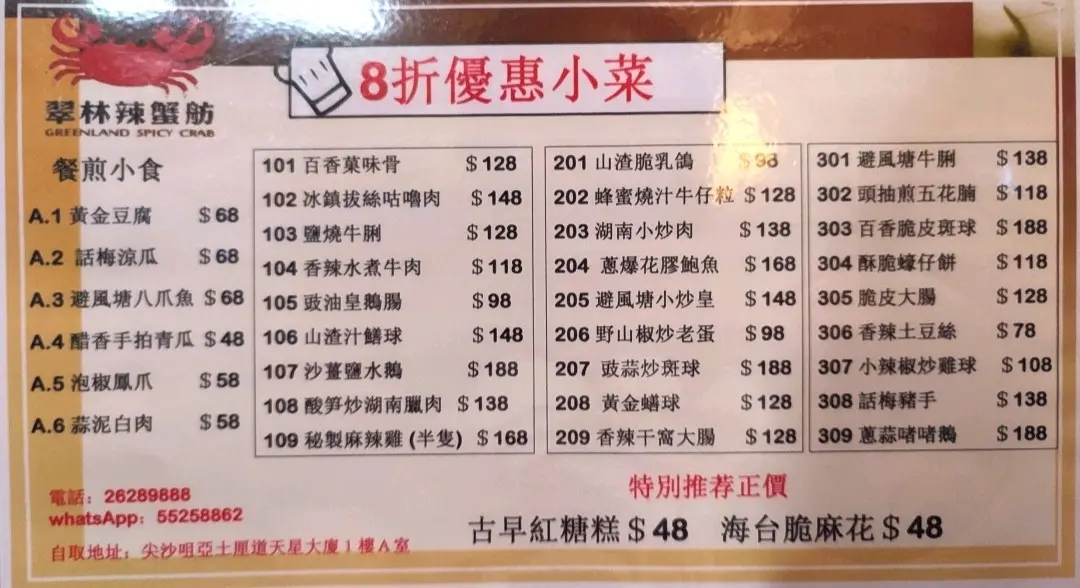 翠林辣蟹舫
GREENLAND SPICY CRAB
8折優惠小菜
餐煎小食
A.1 黃金豆腐 $68
A.2 話梅涼瓜 $68
A.3 避風塘八爪魚 $68
A.4 醋香手拍青瓜 $48
A.5 泡椒鳳爪 $58
A.6 蒜泥白肉 $58
101 百香菓味骨 $128
102 冰鎮拔絲咕嚕肉 $148
103 鹽燒牛脷 $128
104 香辣水煮牛肉 $118
105 豉油皇鵝腸 $98
106 山渣汁鱔球 $148
107 沙薑鹽水鵝 $188
108 酸笋炒湖南臘肉 $138
109 秘製麻辣雞 (半隻) $168
201 山渣脆乳鴿 $98
202 蜂蜜燒汁牛仔粒 $128
203 湖南小炒肉 $138
204 蔥爆花膠鮑魚 $168
205 避風塘小炒皇 $148
206 野山椒炒老蛋 $98
207 豉蒜炒斑球 $188
208 黃金蟮球 $128
209 香辣干窩大腸 $128
301 避風塘牛脷 $138
302 頭抽煎五花腩 $118
303 百香脆皮斑球 $188
304 酥脆蠔仔餅 $118
305 脆皮大腸 $128
306 香辣土豆絲 $78
307 小辣椒炒雞球 $108
308 話梅豬手 $138
309 蔥蒜啫啫鵝 $188
特別推荐正價
古早紅糖糕 $48 海台脆麻花 $48
電話：26289888
whatsApp：55258862
自取地址：尖沙咀亞士厘道天星大廈1樓A室